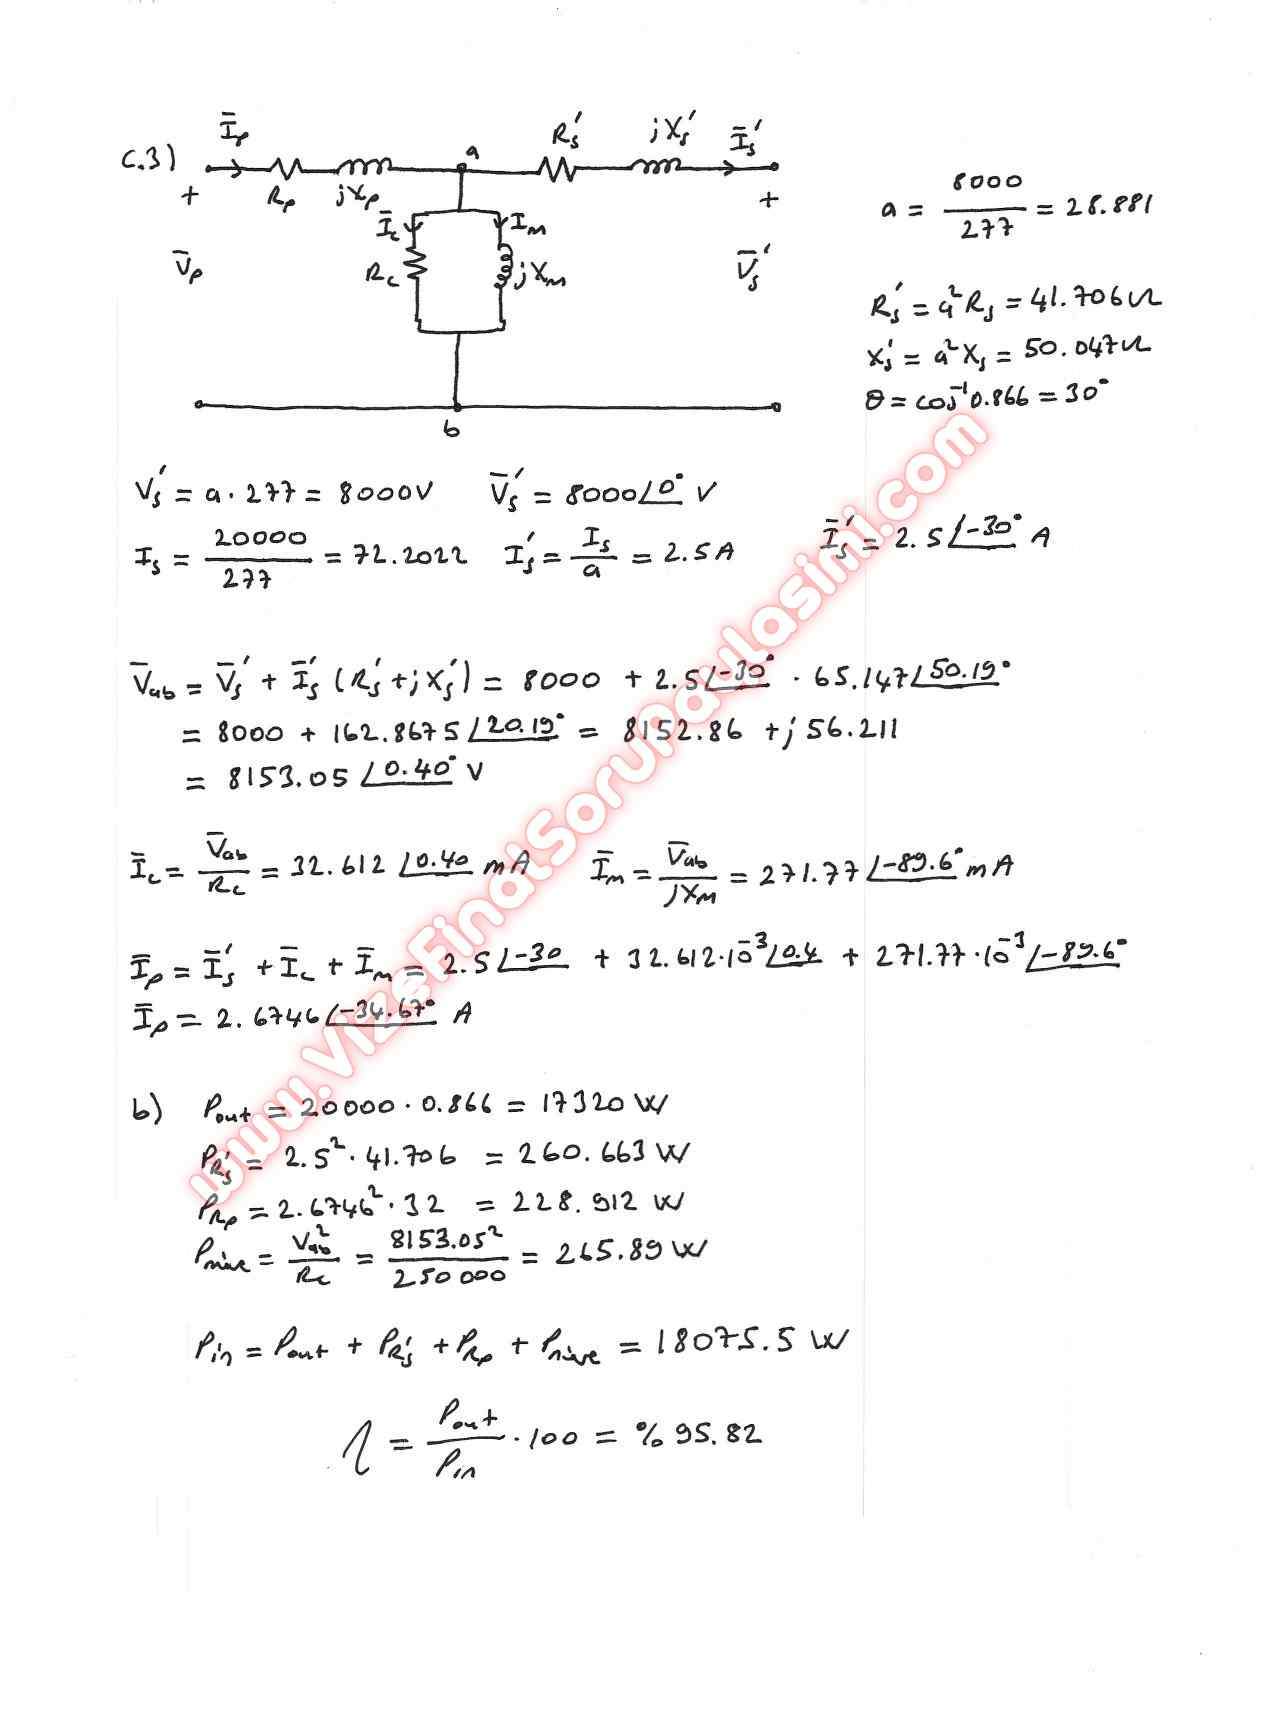 C.3) Īp Rp jXp a Rs' jXs' Īs'
+ V̄p Īc Rc Im jXm + V̄s'
b
a = 8000 / 277 = 28.881
Rs' = a² Rs = 41.706 Ω
Xs' = a² Xs = 50.047 Ω
θ = cos⁻¹ 0.866 = 30°
Vs' = a . 277 = 8000V V̄s' = 8000∠0° V
Is = 20000 / 277 = 72.2022 Is' = Is / a = 2.5 A Īs' = 2.5∠-30° A
V̄ab = V̄s' + Īs' (Rs' + jXs') = 8000 + 2.5∠-30° . 65.147∠50.19°
= 8000 + 162.8675∠20.19° = 8152.86 + j 56.211
= 8153.05∠0.40° V
Īc = V̄ab / Rc = 32.612∠0.40 mA Īm = V̄ab / jXm = 271.77∠-89.6° mA
Īp = Īs' + Īc + Īm = 2.5∠-30 + 32.612.10⁻³∠0.4 + 271.77.10⁻³∠-89.6°
Īp = 2.6746∠-34.67° A
b) Pout = 20000 . 0.866 = 17320 W
PRs' = 2.5² . 41.706 = 260.663 W
PRp = 2.6746² . 32 = 228.912 W
Pnüve = Vab² / Rc = 8153.05² / 250000 = 265.89 W
Pin = Pout + PRs' + PRp + Pnüve = 18075.5 W
η = Pout / Pin . 100 = % 95.82
www.VizeFinalSoruPaylasimi.com